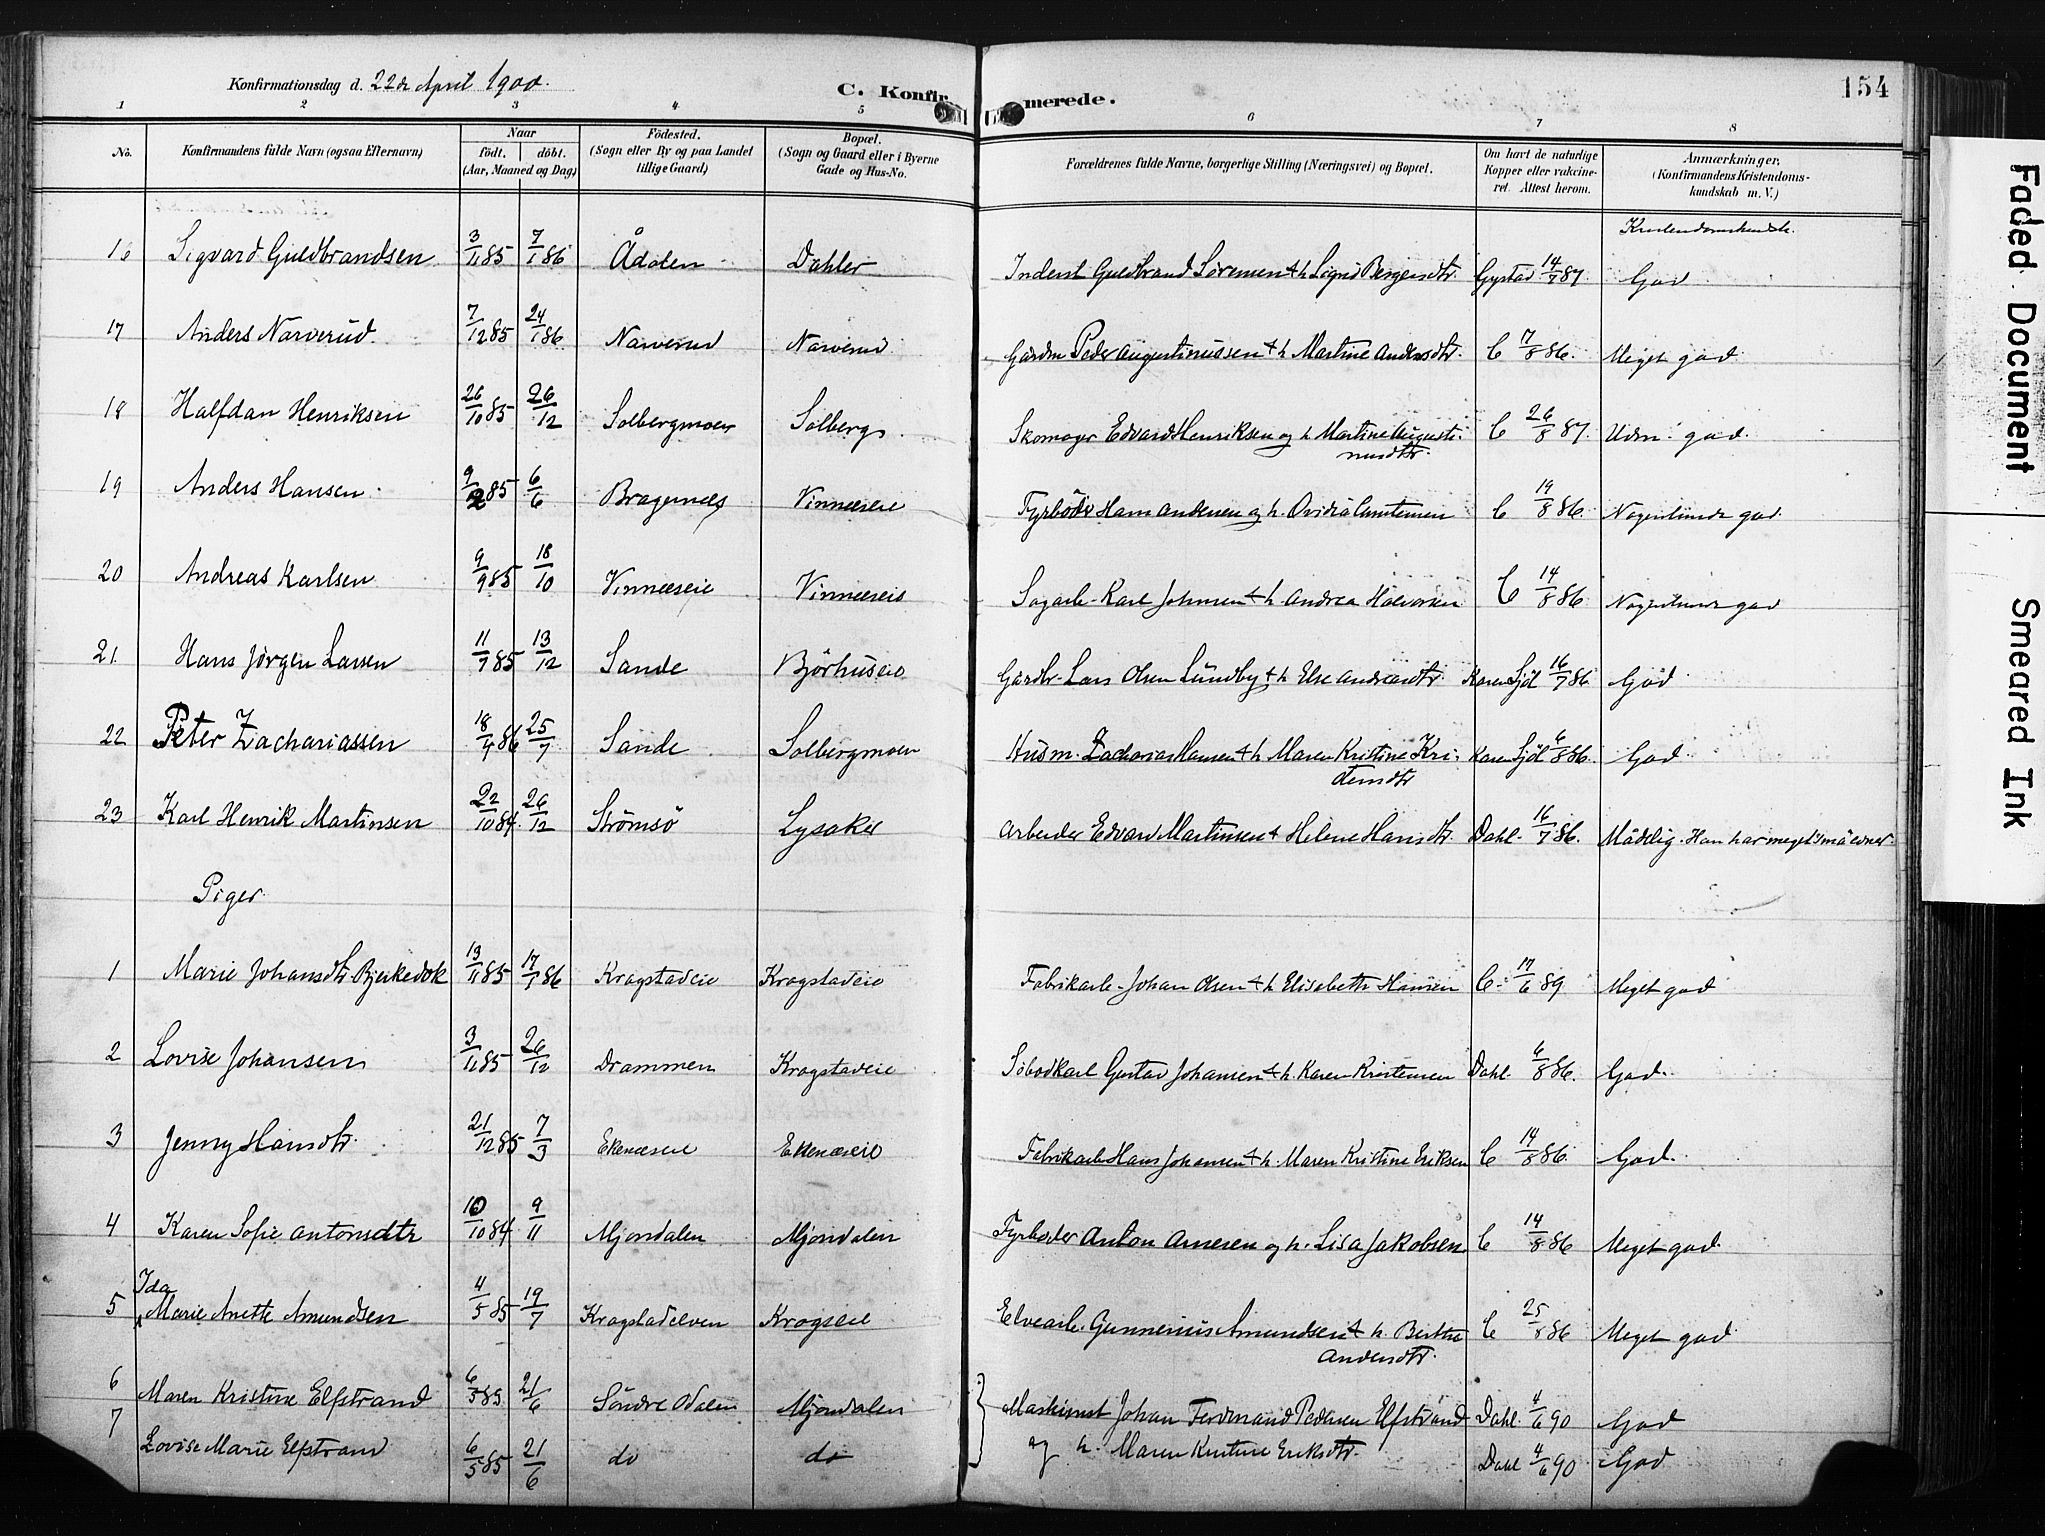 Konfirmationsdag d. 22de April 1900.
C. Konfirmerede.
154
1 2 3 4 5 6 7 8
No.
Konfirmandens fulde Navn (ogsaa Efternavn)
Naar
født. døbt.
(Aar, Maaned og Dag)
Fødested.
(Sogn eller By og paa Landet
tillige Gaard)
Bopæl.
(Sogn og Gaard eller i Byerne
Gade og Hus-No.
Forældrenes fulde Navne, borgerlige Stilling (Næringsvei) og Bopæl.
Om havt de naturlige
Kopper eller vaccine-
ret. Attest herom.
Anmærkninger,
(Konfirmandens Kristendoms-
kundskab m. V.)
16 Sigvard Guldbrandsen 3/11 85 7/1 86 Ådalen Dahler Inderst Guldbrand Sørensen & h Signe Bergersdtr. Gystad 14/7 87. God
17 Anders Narverud 7/12 85 24/1 86 Narverud Narverud Gårdm Peder Augustinussen & h Martine Andersdtr. C 7/8 86. Meget god
18 Halfdan Henriksen 26/10 85 26/12 Solbergmoen Solberg Skomager Edvard Henriksen og h Martine Augusti-
nusdtr. C 26/8 87. Udm. god.
19 Anders Hansen 9/2 85 6/6 Bragernes Vinnæseie Fyrbøder Hans Andersen og h. C 19/8 86. Nogenlunde god.
20 Andreas Karlsen 9/9 85 18/10 Vinnæseie Vinnæseie Sagarb. Karl Johnsen & h Andrea Halvorsen C 14/8 86. Nogenlunde god
21. Hans Jørgen Larsen 11/7 85 13/12 Sande Bjørhuseie Gårdbr. Lars Olsen Lundby & h Else Andreasdtr. Karen Sjøl 16/7 86. God
22 Peter Zachariassen 18/4 86 25/7 Sande Solbergmoen Husm. Zacharias Hansen & h Maren Kristine Kri-
stensdtr Karen Sjøl 6/8 86. God
23 Karl Henrik Martinsen 22/10 84. 26/12 Strømsø Lysaker Arbeider Edvard Martinsen & Helene Hansdtr. Dahl. 16/7 86. Mådelig. Han har meget små evner.
Piger
1 Marie Johansdtr. Bjerkedok 13/11 85 17/1 86 Krogstadeie Krogstadeie Fabrikarb. Johan Olsen & h Elisabeth Hansen C. 17/6 89 Meget god
2 Lovise Johansen 3/11 85 26/12 Drammen Krogstadeie Gustav Johansen & h. Karen Kristensen Dahl. 6/8 86. God.
3 Jenny Hansdtr. 21/12 85 7/3 Ekenæseie Ekenæseie Fabrikarb Hans Johansen & h. Maren Kristine Eriksen C 14/8 86. God.
4 Karen Sofie Antonsdtr 10/10 84. 9/11 Mjøndalen Mjøndalen Fyrbøder Anton Arnesen og h. Lisa Jakobsen. C 14/8 86 Meget god
Ida
5 Marie Anette Amundsen 4/5 85 19/7 Krogstadelven Krogseie Elvearb. Gunnerius Amundsen & h. Berthe
Andersdtr. C 25/8 86 Meget god
6 Maren Kristine Elfstrand 6/5 85. 21/6 Søndre Odalen Mjøndalen Maskinist Johan Ferdinand Pedersen Elfstrand Dahl. 4/6 90 God
7 Lovise Marie Elfstrand 6/5 85 21/6 do do og h. Maren Kristine Eriksdtr. Dahl 4/6 90 God
Faded Document
Smeared Ink